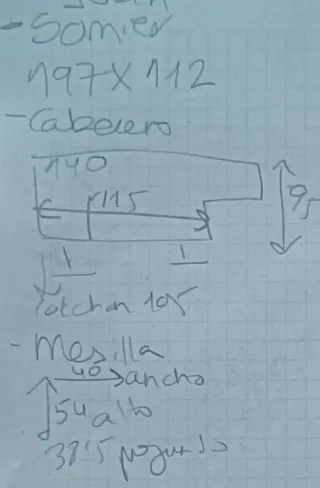 - Somier
197 X 112
- Cabecero
140
115
95
1 1
105
- Mesilla
40 ancho
54 alto
38'5